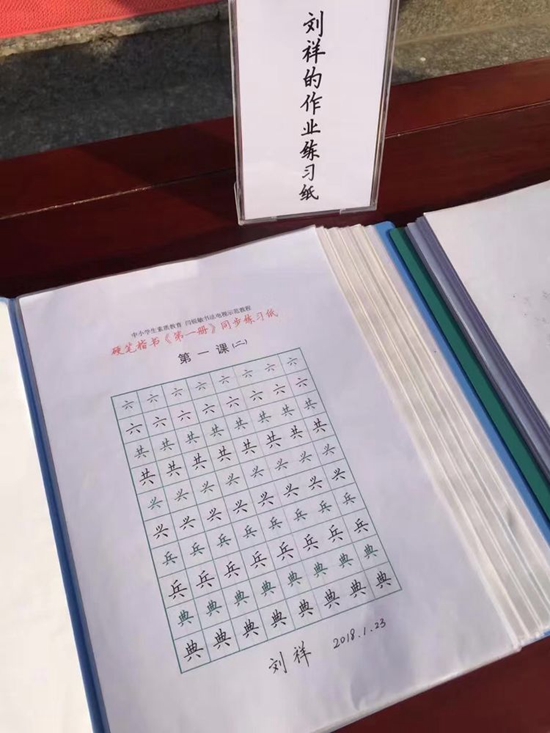 刘祥的作业练习纸
中小学生素质教育 闫锐敏书法电视示范教程
硬笔楷书《第一册》同步练习纸
第一课(二)
六六六六六六六六
六六六六六六六六
共共共共共共共共
共共共共共共共共
兴兴兴兴兴兴兴兴
兴兴兴兴兴兴兴兴
兵兵兵兵兵兵兵兵
兵兵兵兵兵兵兵兵
典典典典典典典典
典典典典典典典典
刘祥 2018.1.23